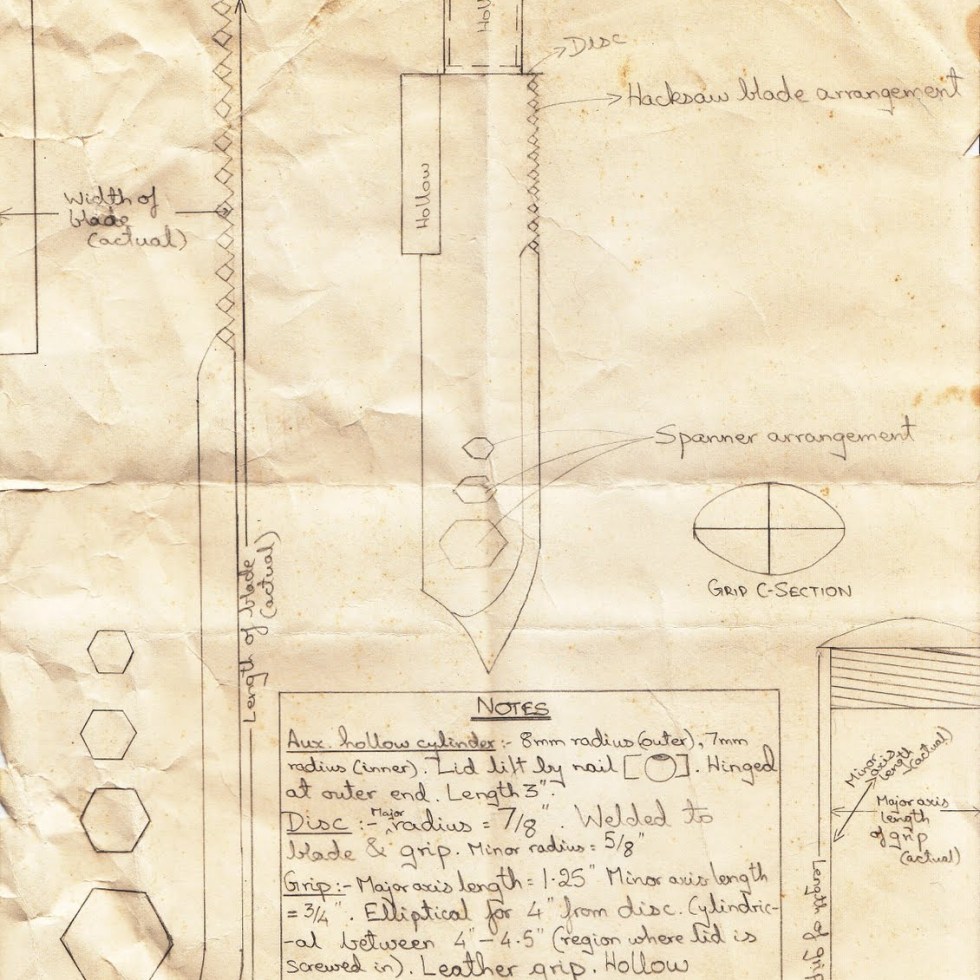 Hol
Disc
Hacksaw blade arrangement
Hollow
Width of
blade
(actual)
Spanner arrangement
GRIP C-SECTION
Length of blade
(actual)
NOTES
Aux. hollow cylinder:- 8mm radius (outer), 7mm
radius (inner). Lid lift by nail [ ]. Hinged
at outer end. Length 3".
Disc :- Major radius = 7/8". Welded to
blade & grip. Minor radius = 5/8"
Grip:- Major axis length = 1.25" Minor axis length
= 3/4". Elliptical for 4" from disc. Cylindric-
-al between 4" - 4.5" (region where lid is
screwed in). Leather grip. Hollow
Minor
axis
length
(actual)
Major axis
length
of grip
(actual)
Length of grip